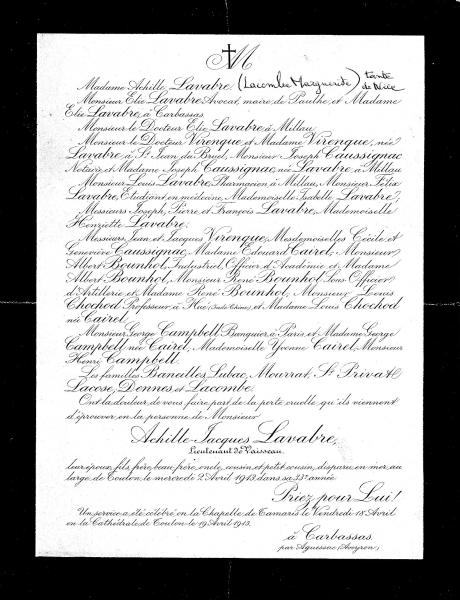 M
Madame Achille Lavabre, (Lacombe Marguerite) tante de Nice
Monsieur Elie Lavabre Avocat, maire de Paulhe, et Madame
Elie Lavabre, à Carbassas.
Monsieur le Docteur Elie Lavabre à Millau,
Monsieur le Docteur Virenque et Madame Virenque, née
Lavabre à St Jean du Bruel, Monsieur Joseph Caussignac
Notaire et Madame Joseph Caussignac née Lavabre, à Millau
Monsieur Louis Lavabre, Pharmacien à Millau, Monsieur Félix
Lavabre, Etudiant en médecine, Mademoiselle Isabelle Lavabre,
Messieurs Joseph, Pierre et François Lavabre, Mademoiselle
Henriette Lavabre;
Messieurs, Jean et Jacques Virenque, Mesdemoiselles Cécile et
Geneviève Caussignac, Madame Edouard Cairel, Monsieur
Albert Bounhol, Industriel, Officier d'Académie et Madame
Albert Bounhol, Monsieur René Bounhol Sous Officier
d'Artillerie et Madame René Bounhol, Monsieur Louis
Chochod Professeur à Hué (Indo Chine) et Madame Louis Chochod
née Cairel,
Monsieur George Campbell Banquier à Paris, et Madame George
Campbell née Cairel, Mademoiselle Yvonne Cairel, Monsieur
Henri Campbell:
Les familles Baneilles, Lubac, Mourrat, St Privat
Lacose, Dennes et Lacombe.
Ont la douleur de vous faire part de la perte cruelle qu'ils viennent
d'éprouver en la personne de Monsieur
Achille-Jacques Lavabre,
Lieutenant de Vaisseau.
leur époux, fils, frère, beau-frère, oncle, cousin et petit cousin, disparu en mer au
large de Toulon le mercredi 2 Avril 1913 dans sa 33e année.
Priez pour Lui!
Un service a été célébré en la Chapelle de Tamaris le Vendredi 18 Avril
en la Cathédrale de Toulon le 19 Avril 1913.
à Carbassas.
par Aguessac (Aveyron)